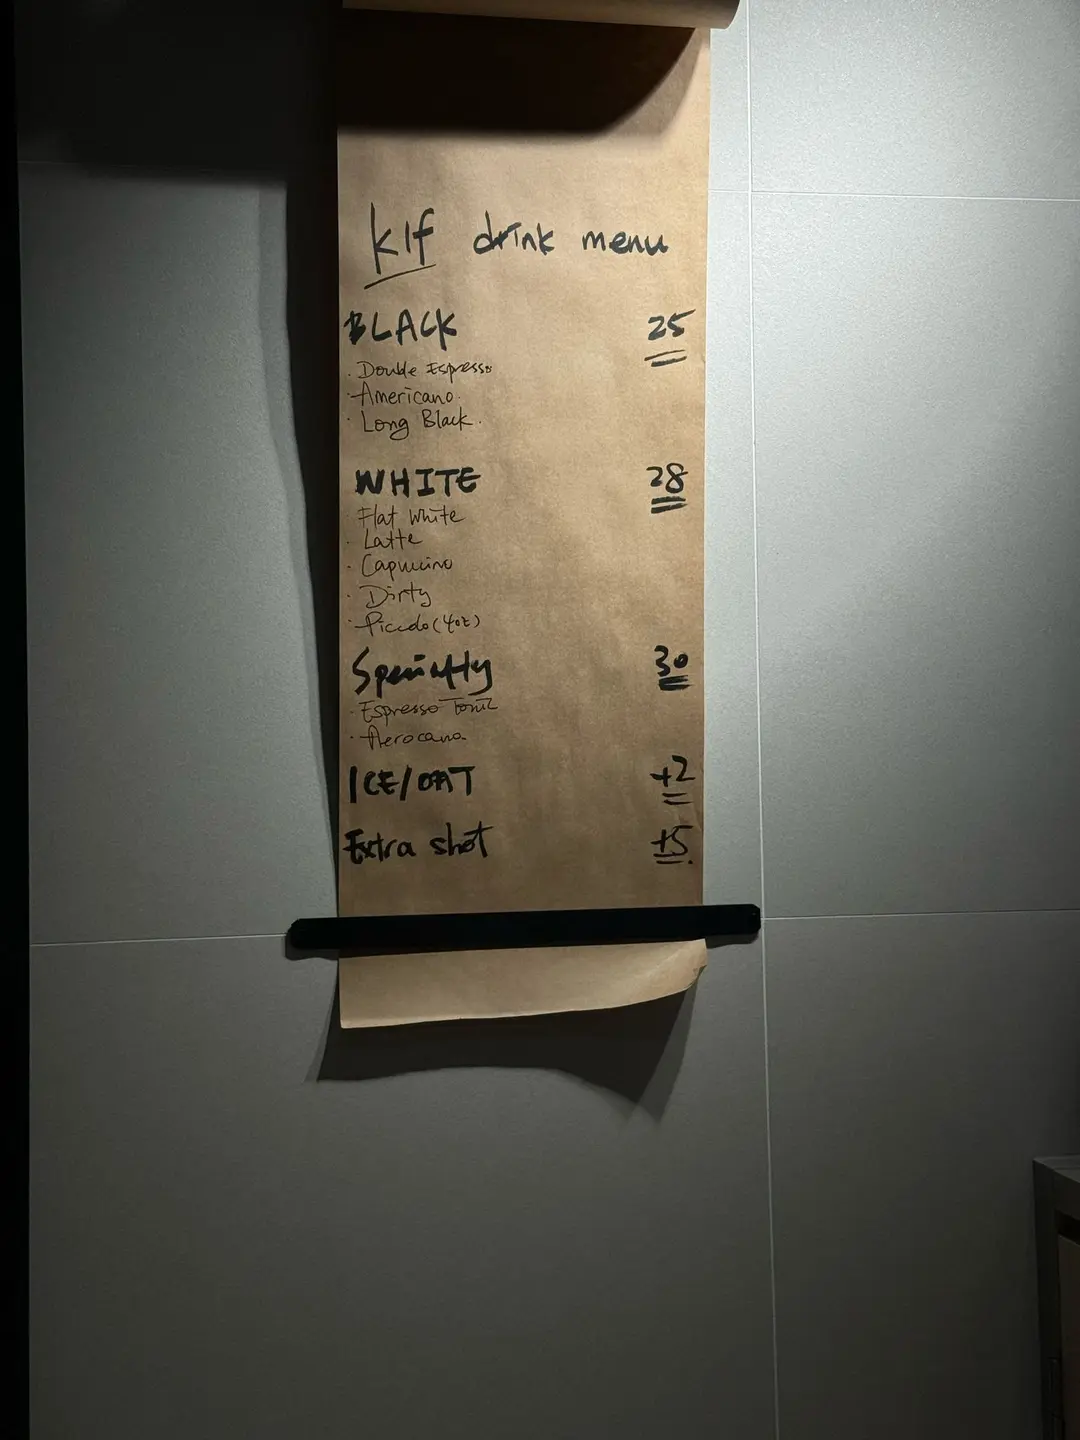 klf drink menu
BLACK 25
· Double Espresso
· Americano.
· Long Black.
WHITE 28
· Flat White
· Latte
· Capuccino
· Dirty
· Piccolo (4oz)
Specialty 30
· Espresso Tonic
· Aerocano
ICE/OAT +2
Extra shot +5.